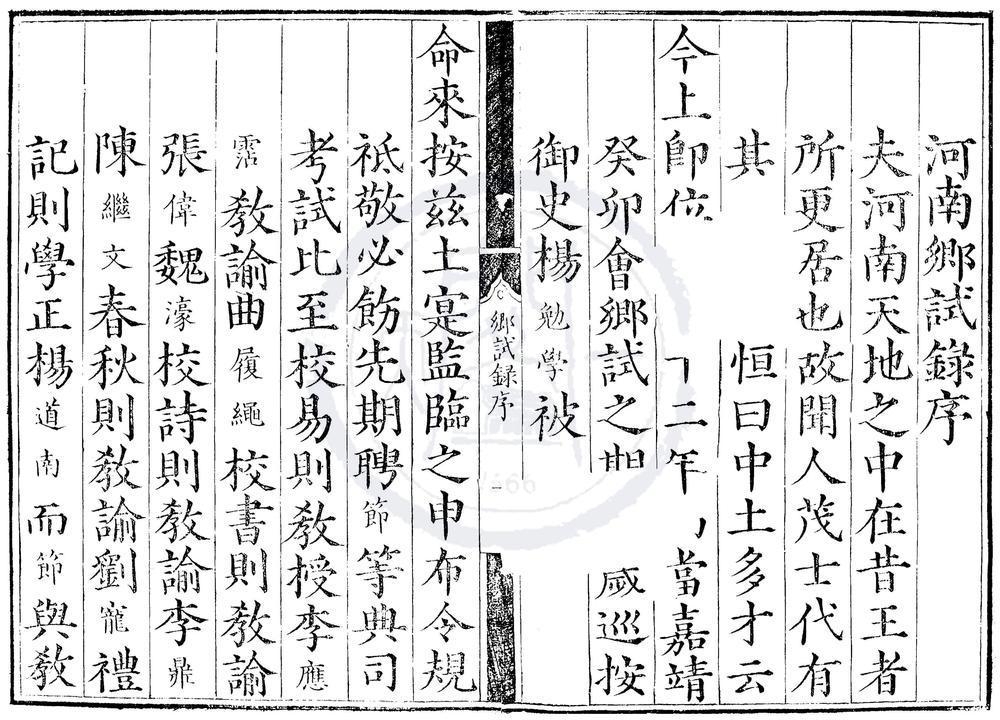 河南鄉試錄序
夫河南天地之中在昔王者
所更居也故聞人茂士代有
其恒曰中土多才云
今上卽位二年當嘉靖
癸卯會鄉試之期巡按
御史楊勉學被
鄉試錄序 一
命來按兹土寔監臨之申布令規
祗敬必飭先期聘節等典司
考試比至校易則教授李應
霑教諭曲履繩校書則教諭
張偉魏濠校詩則教諭李鼎
陳繼文春秋則教諭劉寵禮
記則學正楊道南而節與教